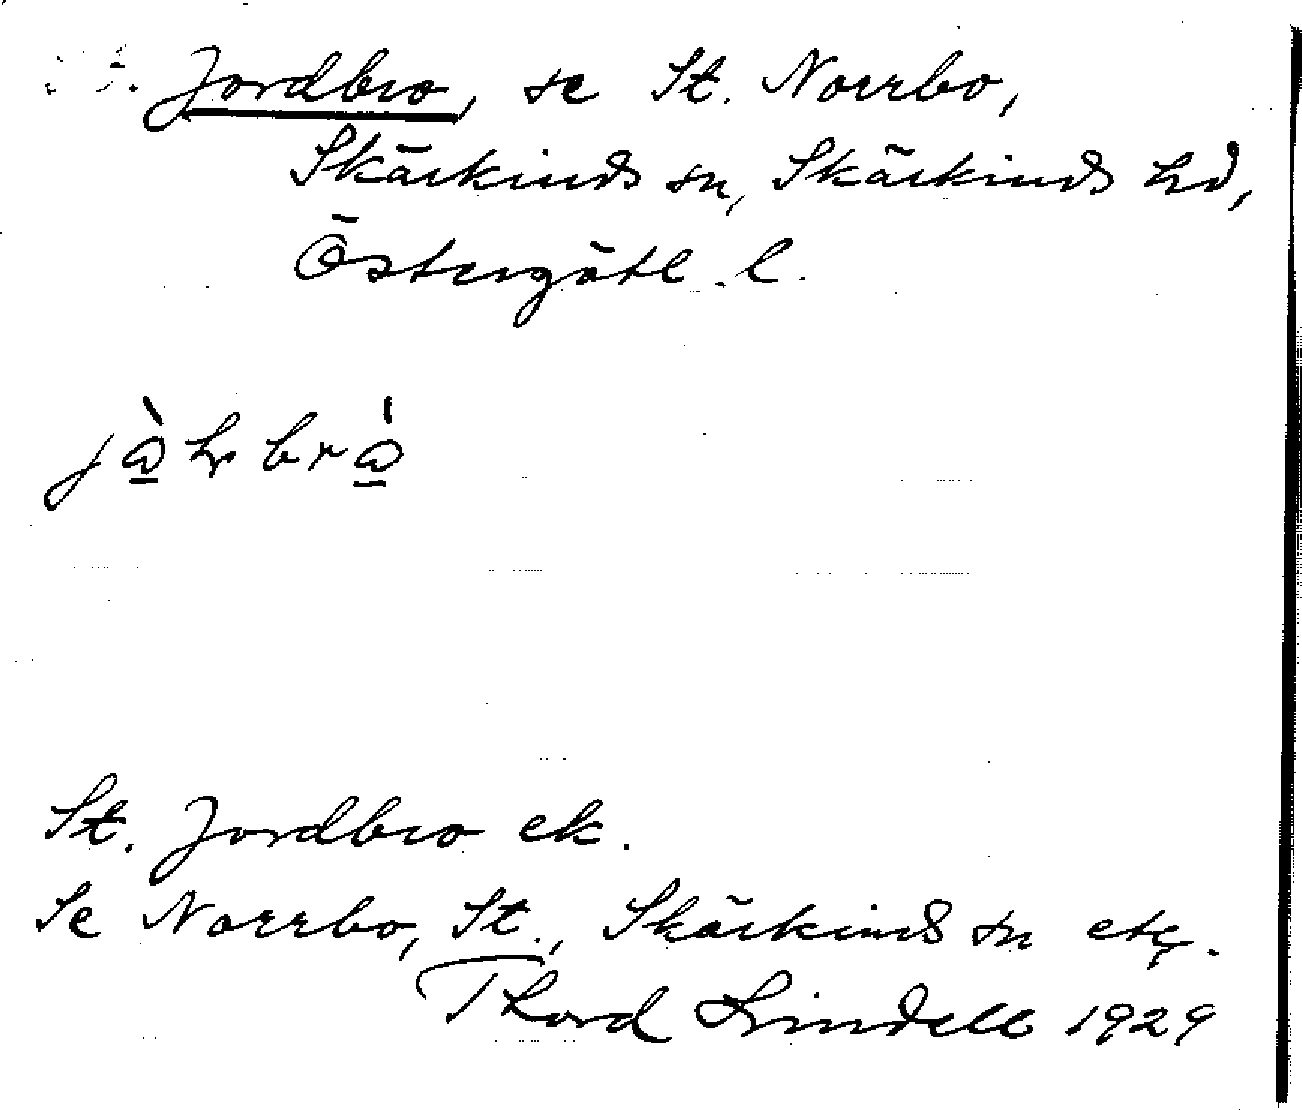 St. Jordbro, se St. Norrbo,
Skärkinds sn, Skärkinds hd,
Östergötl. l.
St. Jordbro ek.
Se Norrbo, St., Skärkinds sn etc.
Thord Lindell 1929